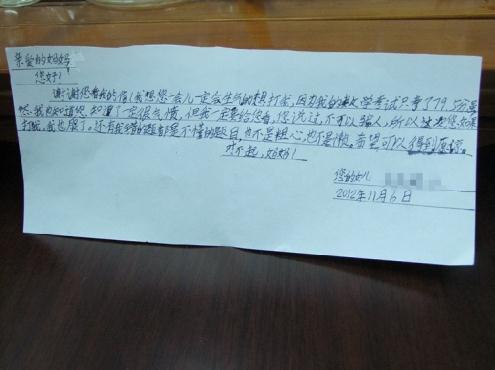 亲爱的妈妈
您好!
谢谢您看我的信!我想您一会儿一定会生气的想打我,因为我的数学考试只考了79,
我也知道您,知道了一定很气愤,但我一定要给您看,您说过,不可以骗人,所以
打我,我也认了,还有我错的题都是不懂的题目,也不是粗心,也不是懒。希望可以得到原谅。
对不起,妈妈!
您的女儿
2012年11月6日